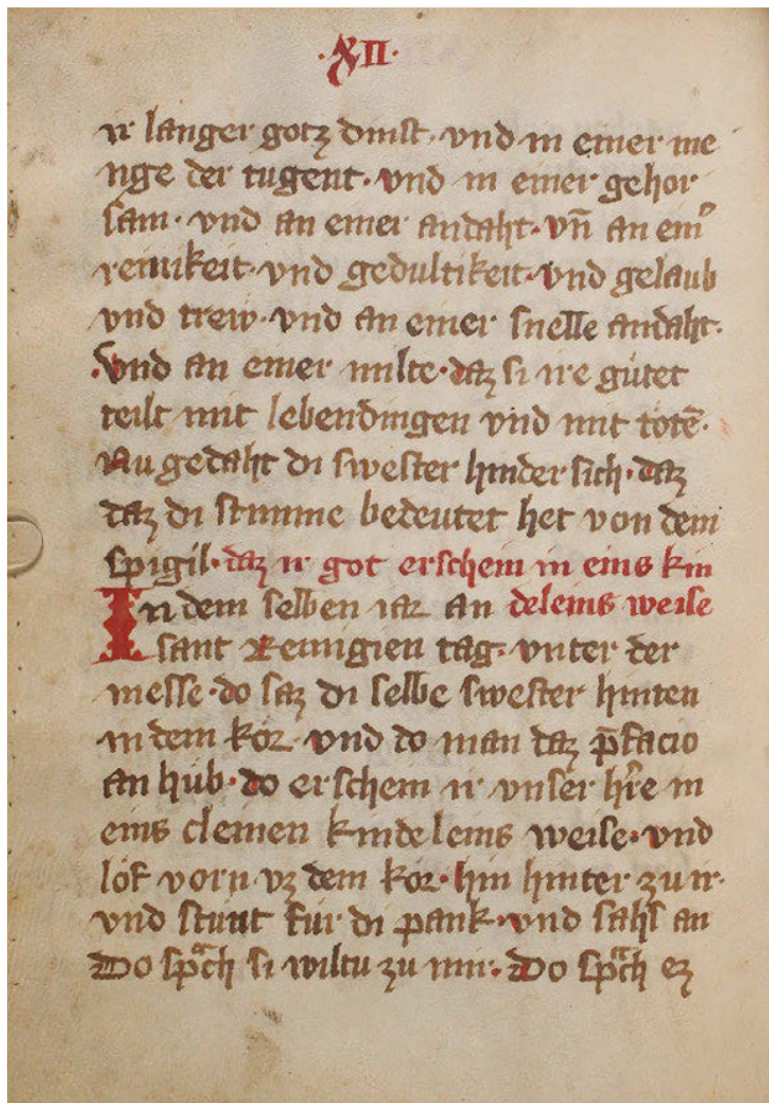 ·XII·
ir langer gotz dinst· vnd in einer me
nge der tugent· vnd in einer gehor
sam· vnd an einer andaht· vn̄ an ein͛
reinikeit· vnd gedultikeit· vnd gelaub
vnd trew· vnd an einer snelle andaht·
·Vnd an einer milte· daz si ire gůtet
teilt mit lebendingen vnd mit totē·
Nu gedaht di swester hinder sich· daz
daz di stimme bedeutet het von dem
spigil· daz ir got erschein in eins kin
In dem selben iar an deleins weise
sant Remigien tag· vnter der
messe· do saz di selbe swester hinten
in dem kor· vnd do man daz p̄facio
an hub· do erschein ir vnser h̄re in
eins cleinen kindeleins weise· vnd
lof vorn vz dem kor· hin hinter zu ir·
vnd stunt fur di pank· vnd sahs an
Do spͣch si wiltu zu mir· Do spͣch ez